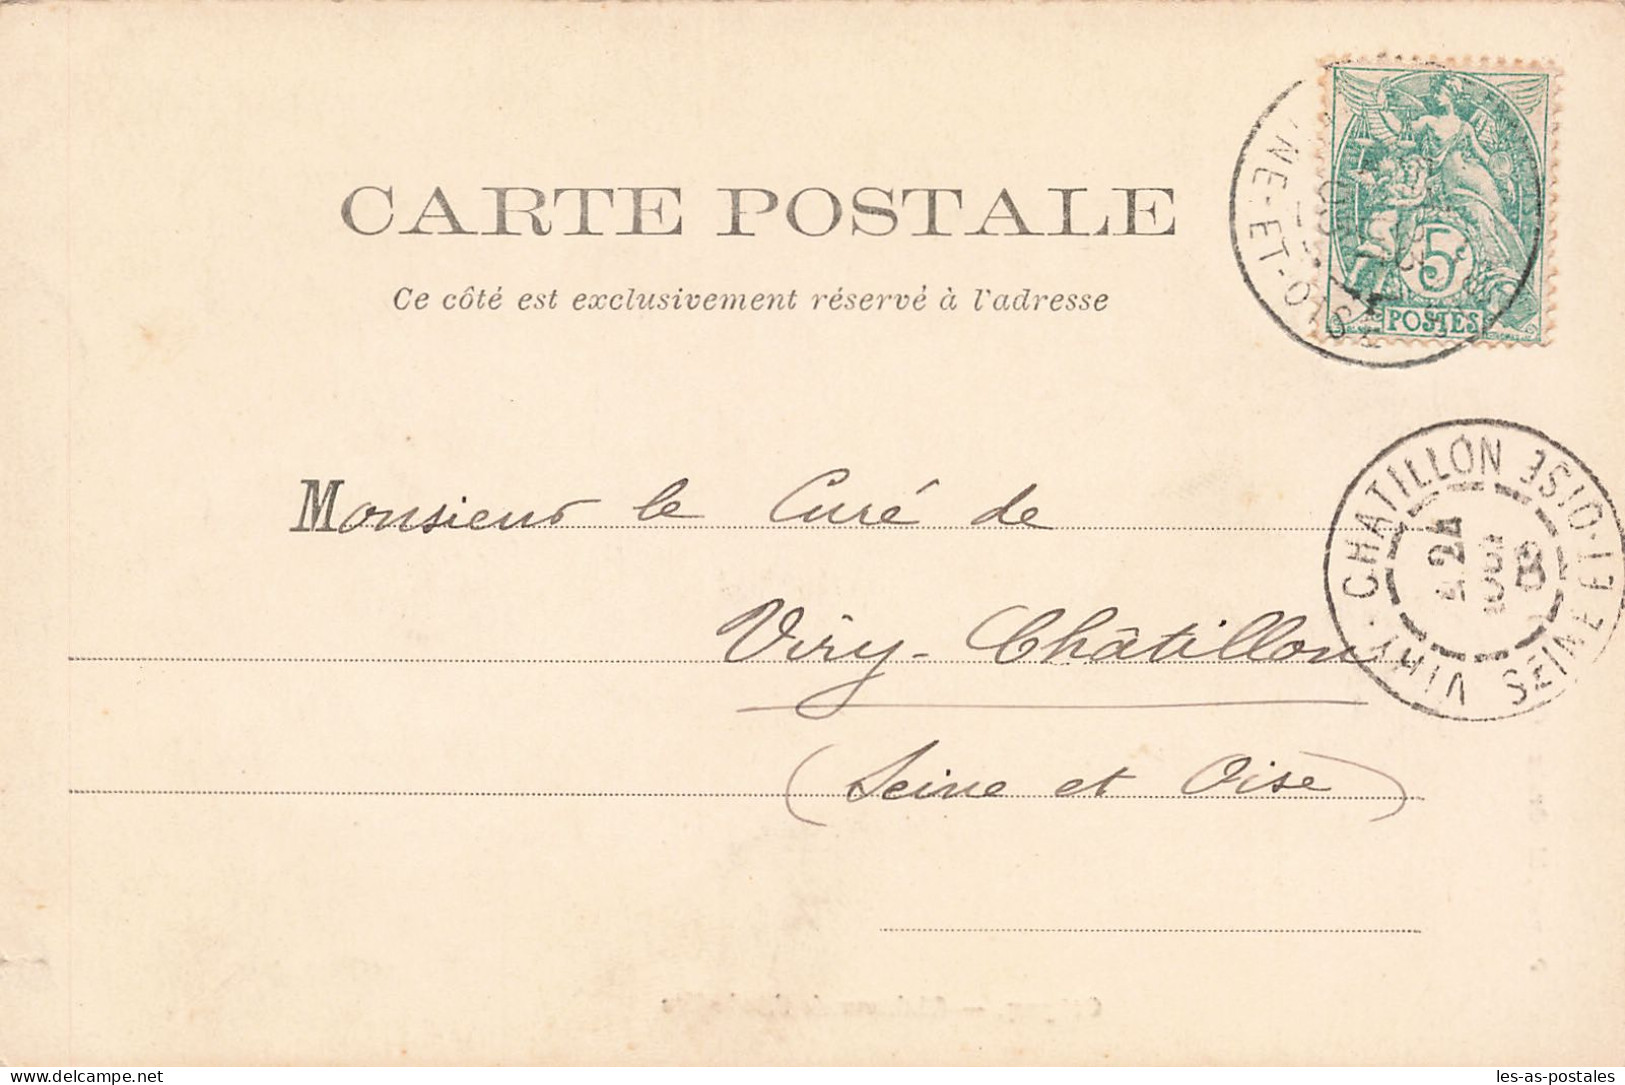 CARTE POSTALE
Ce côté est exclusivement réservé à l'adresse
5
POSTES
NE-ET-OISE
CHATILLON
VIRY
SEINE ET-OISE
Monsieur le Curé de
Viry-Châtillon
(Seine et Oise)
delcampe.net
les-as-postales